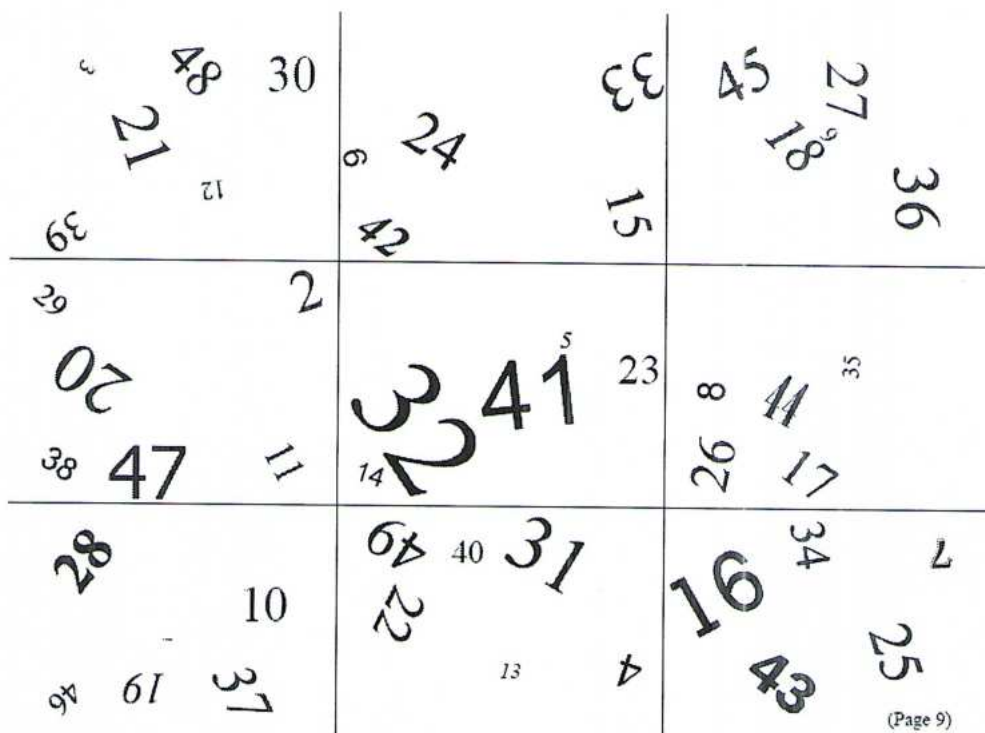 3 48 30
21
12
39
33
24
6
15
42
45 27
18 9
36
29 2
20
38 47 11
5
41 23
32
14
35
8 44
26 17
28
10
46 19 37
49 40 31
22
13 4
34 7
16
25
43
(Page 9)